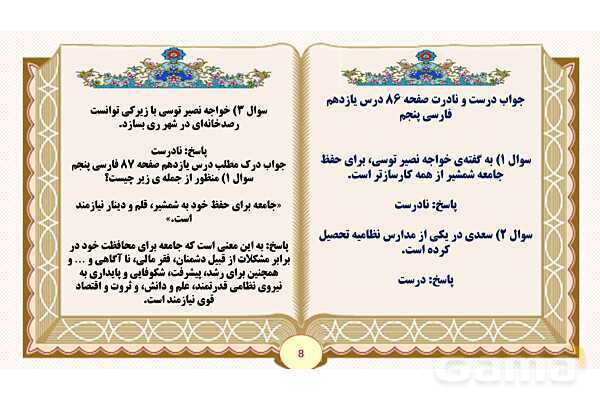 جواب درست و نادرت صفحه ۸۶ درس یازدهم
فارسی پنجم
سوال ۱) به گفته‌ی خواجه نصیر توسی، برای حفظ
جامعه شمشیر از همه کارسازتر است.
پاسخ: نادرست
سوال ۲) سعدی در یکی از مدارس نظامیه تحصیل
کرده است.
پاسخ: درست
سوال ۳) خواجه نصیر توسی با زیرکی توانست
رصدخانه‌ای در شهر ری بسازد.
پاسخ: نادرست
جواب درک مطلب درس یازدهم صفحه ۸۷ فارسی پنجم
سوال ۱) منظور از جمله ی زیر چیست؟
«جامعه برای حفظ خود به شمشیر، قلم و دینار نیازمند
است.»
پاسخ: به این معنی است که جامعه برای محافظت خود در
برابر مشکلات از قبیل دشمنان، فقر مالی، نا آگاهی و ... و
همچنین برای رشد، پیشرفت، شکوفایی و پایداری به
نیروی نظامی قدرتمند، علم و دانش، و ثروت و اقتصاد
قوی نیازمند است.
8
Gama